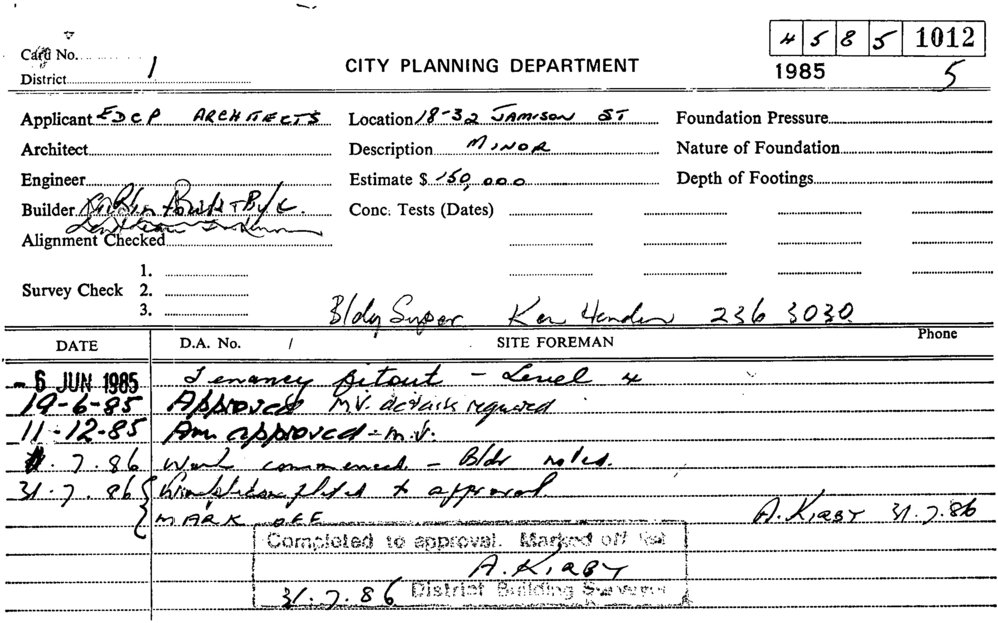 4 5 8 5 1012
Card No.
CITY PLANNING DEPARTMENT
1985 5
District 1
Applicant EDCP ARCHITECTS Location 18-32 JAMISON ST Foundation Pressure
Architect Description MINOR Nature of Foundation
Engineer Estimate $ 150,000 Depth of Footings
Builder Conc. Tests (Dates)
Alignment Checked
1.
Survey Check 2.
3.
Bldg Super Ken 236 3030
DATE D.A. No. / SITE FOREMAN Phone
- 6 JUN 1985 Tenancy fitout - Level 4
19-6-85 Approved M.V. details required
11-12-85 Am. approved - m.v.
7.86 Work commenced - Bldr notes.
31-7.86 to approval
MARK OFF A. KIRBY 31.7.86
Completed to approval. Marked off list
A. KIRBY
31.7.86 District Building Surveyor